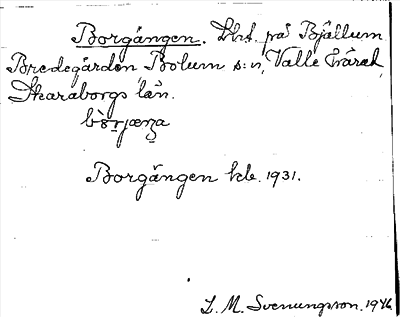 Borgängen. Lht. på Bjällum
Bredegården Bolum s:n, Valle härad,
Skaraborgs län.
Borgängen kb. 1931.
L. M. Svenungsson. 1946